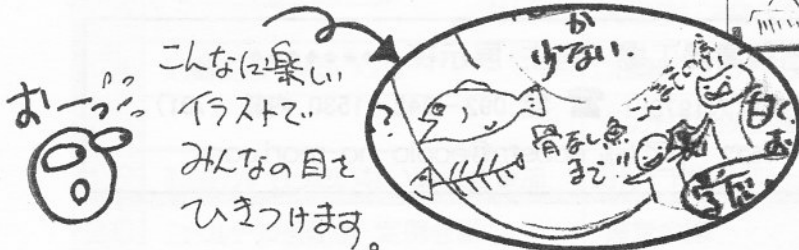 おーっ
こんなに楽しい
イラストで
みんなの目を
ひきつけます。
か
少ない
骨なし魚
まで!!